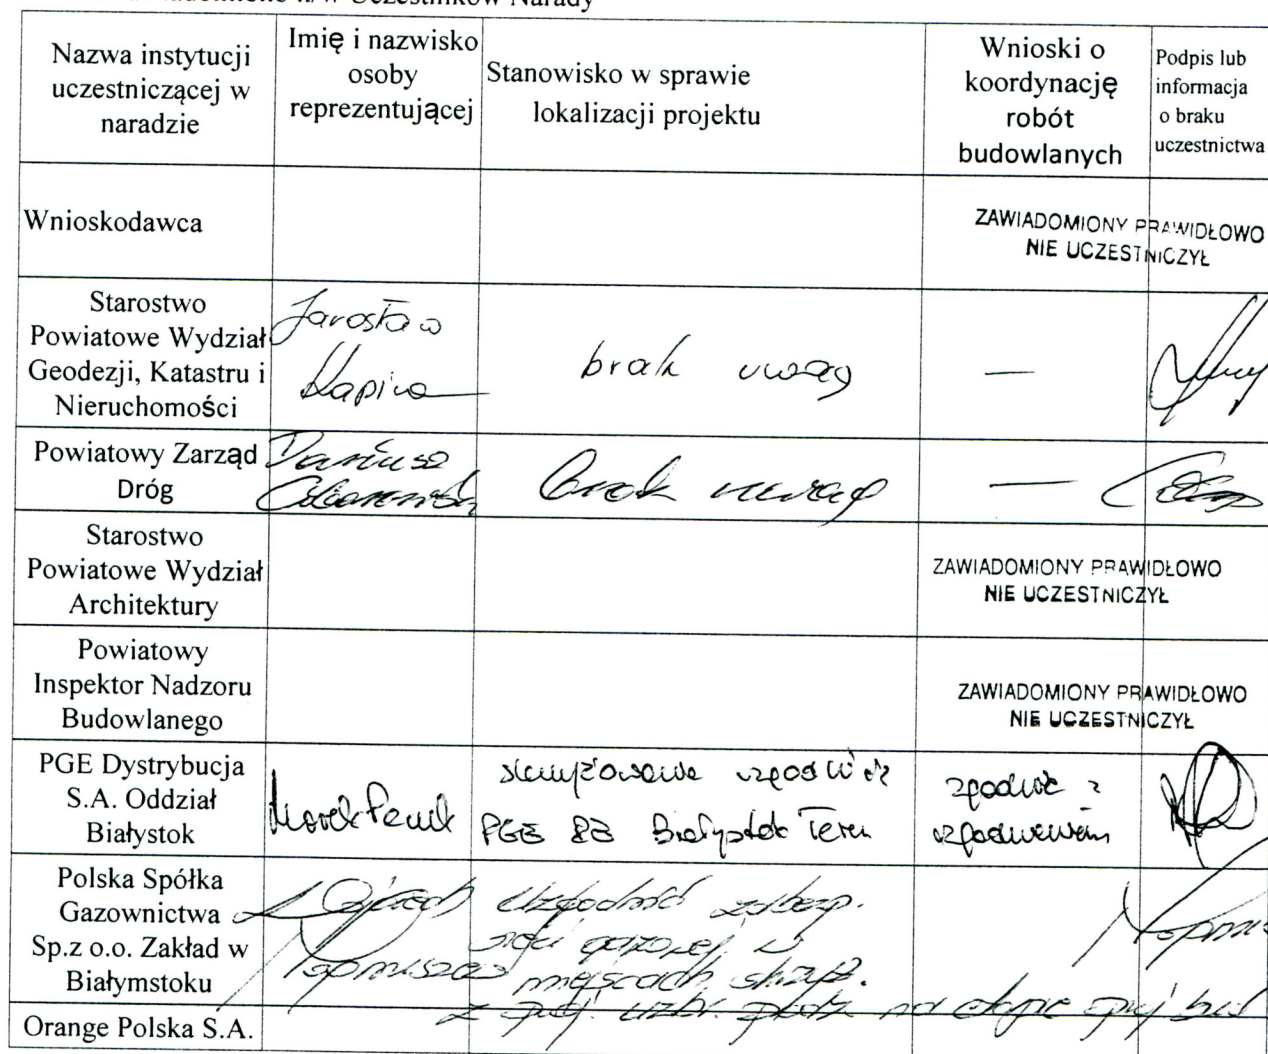 Uczestników Narady
Nazwa instytucji
uczestniczącej w
naradzie
Imię i nazwisko
osoby
reprezentującej
Stanowisko w sprawie
lokalizacji projektu
Wnioski o
koordynację
robót
budowlanych
Podpis lub
informacja
o braku
uczestnictwa
Wnioskodawca
ZAWIADOMIONY PRAWIDŁOWO
NIE UCZESTNICZYŁ
Starostwo
Powiatowe Wydział
Geodezji, Katastru i
Nieruchomości
Jarosław
brak uwag
—
Powiatowy Zarząd
Dróg
Dariusz
Brak uwag
—
Starostwo
Powiatowe Wydział
Architektury
ZAWIADOMIONY PRAWIDŁOWO
NIE UCZESTNICZYŁ
Powiatowy
Inspektor Nadzoru
Budowlanego
ZAWIADOMIONY PRAWIDŁOWO
NIE UCZESTNICZYŁ
PGE Dystrybucja
S.A. Oddział
Białystok
Marek
skrzyżowanie
PGE Białystok Teren
zgodnie z
uzgodnieniem
Polska Spółka
Gazownictwa
Sp.z o.o. Zakład w
Białymstoku
Uzgodnić zabezp.
sieci gazowej w
miejscach skrzyż.
z proj. uzbr. na etapie proj. bud
Orange Polska S.A.